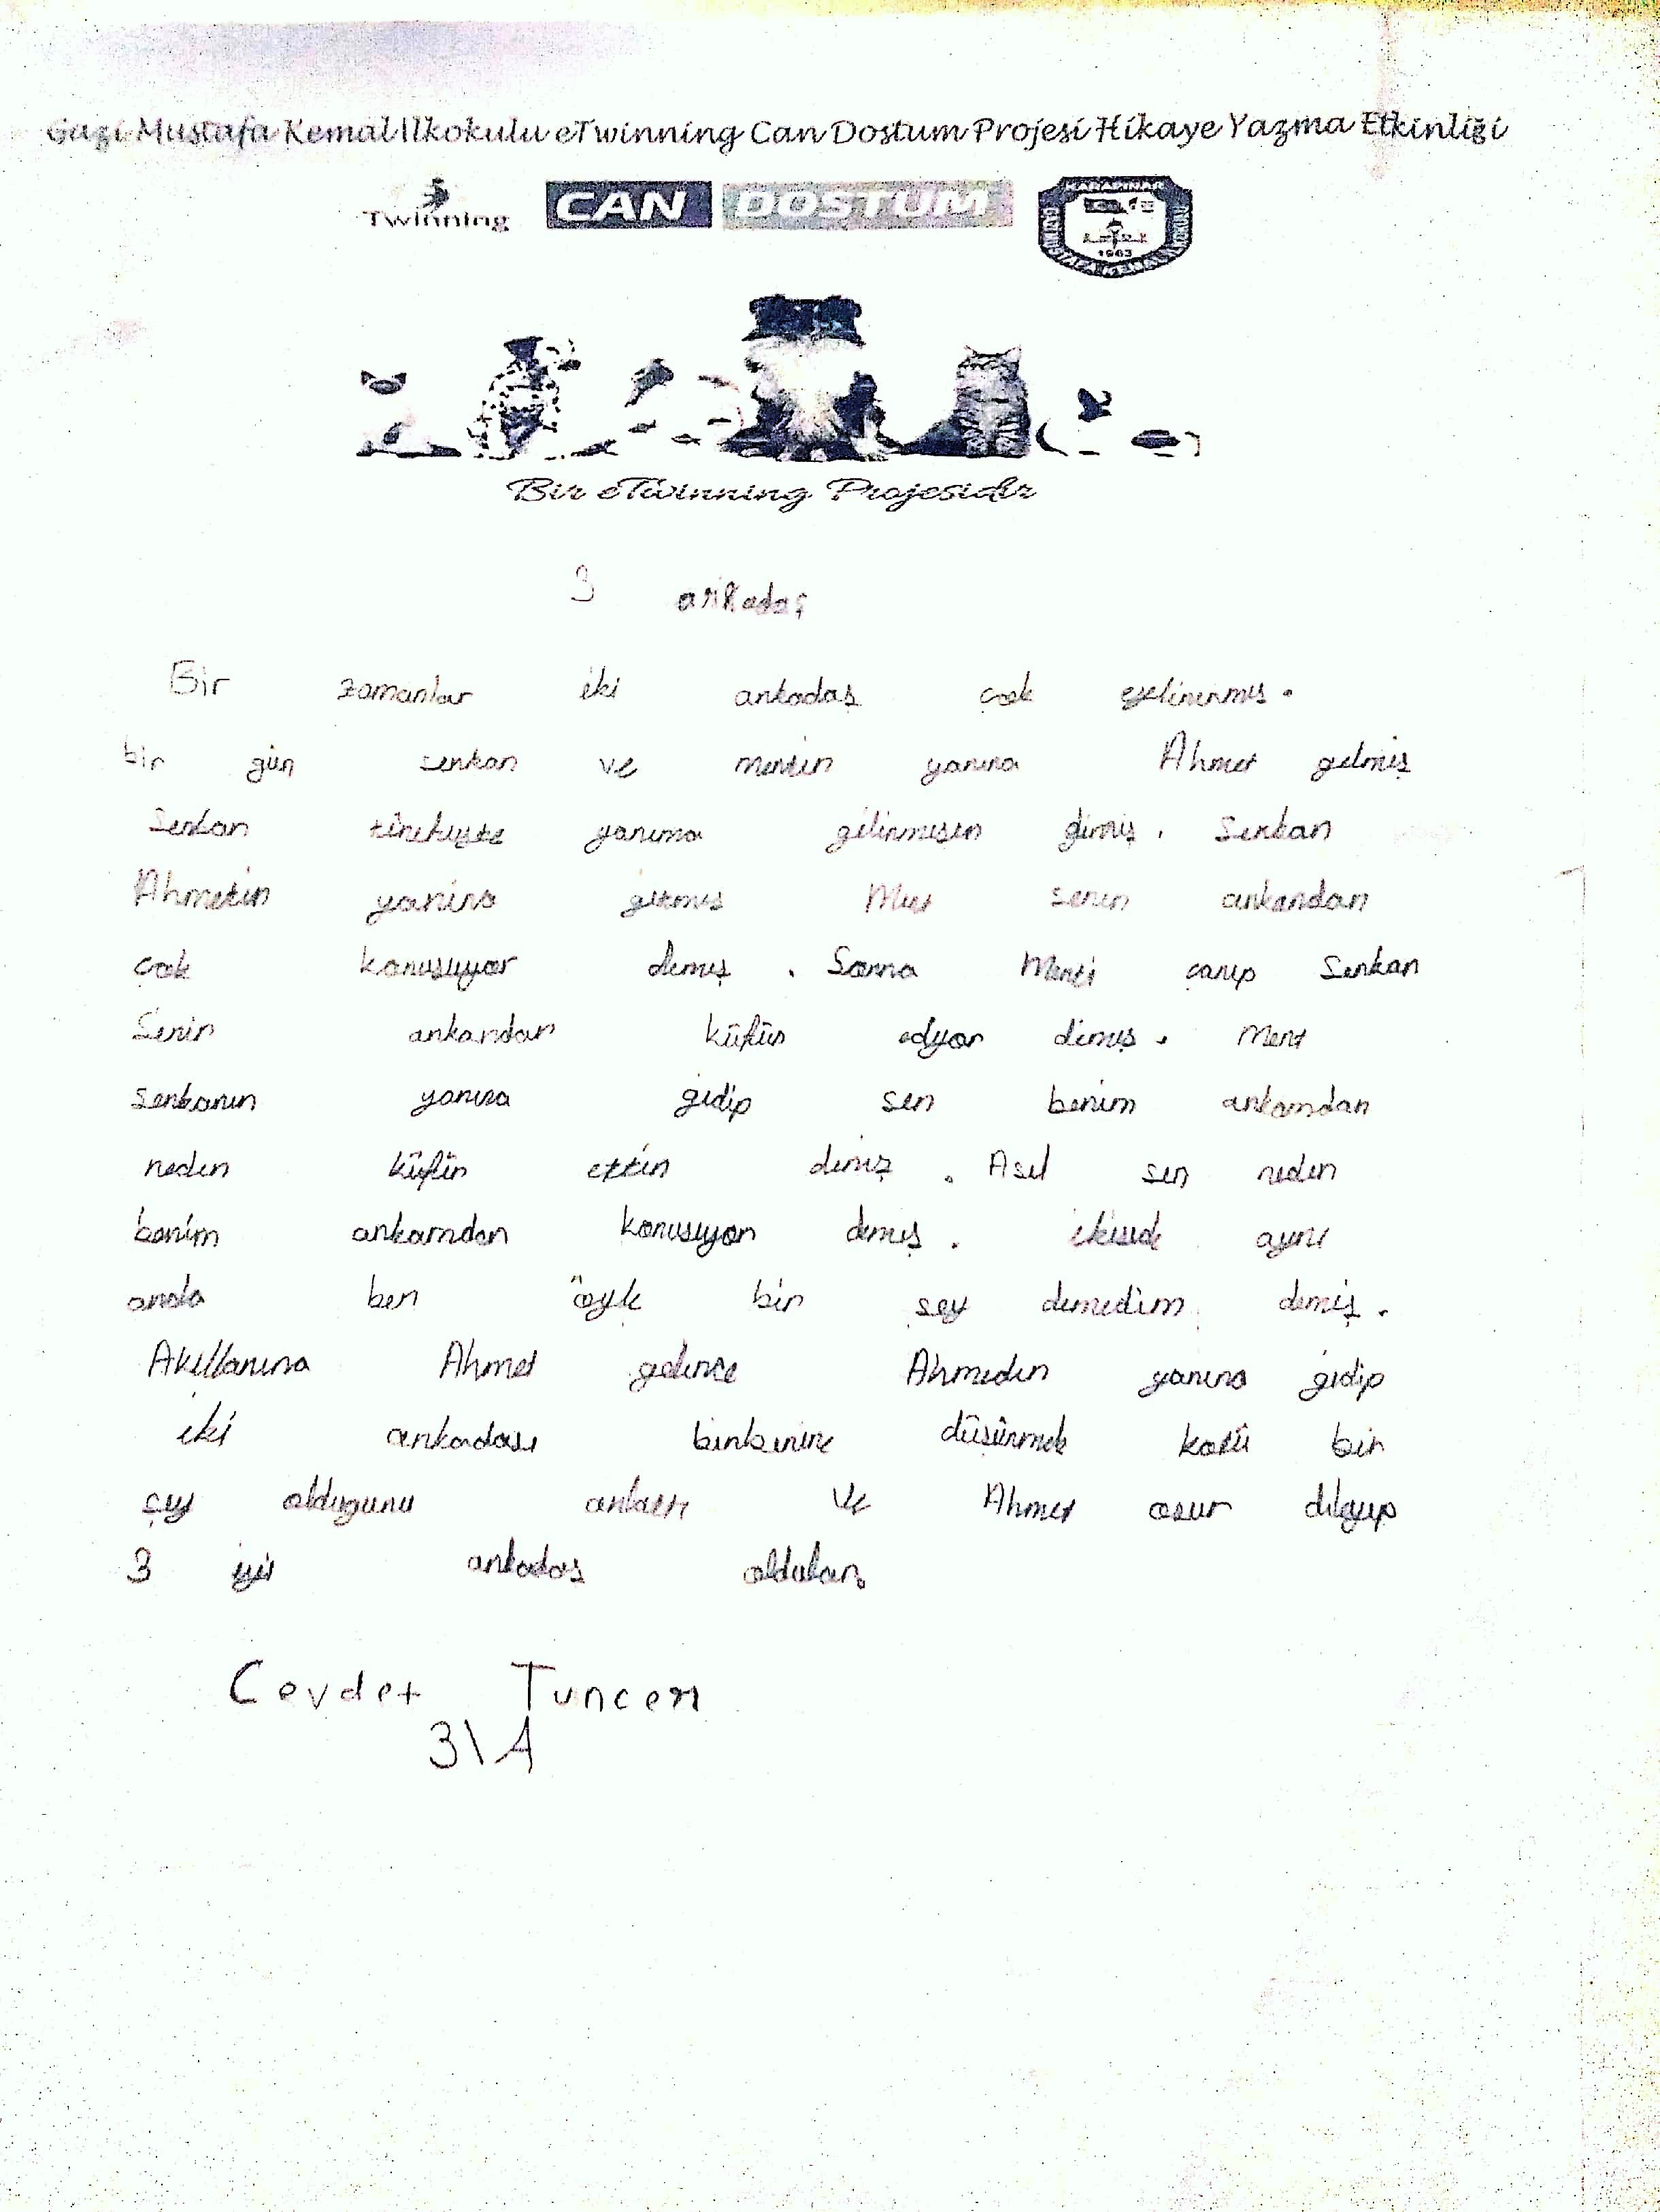 Gazi Mustafa Kemal İlkokulu eTwinning Can Dostum Projesi Hikaye Yazma Etkinliği
Twinning CAN DOSTUM KARAPINAR 1963
Bir eTwinning Projesidir
3 arkadaş
Bir zamanlar iki arkadaş çok eyelinirmiş.
bir gün serkan ve mertin yanına Ahmet gelmiş
Serkan yanıma gelirmisin dimiş. Serkan
Ahmetin yanina gitmiş Mert senin arkandan
çok konusuyor demiş. Sonra Merti çarıp Serkan
Senin arkandan küfür edyor dimiş. Mert
serkanın yanına gidip sen benim arkamdan
neden küfür ettin dimiş. Asıl sen neden
benim arkamdan konusuyon demiş. ikiside aynı
anda ben öyle bir sey demedim demiş.
Akıllarına Ahmet gelince Ahmedin yanına gidip
iki arkadası birbirine düsürmek kotü bir
şey oldugunu anlattı ve Ahmet özür dileyip
3 iyi arkadas oldular.
Cevdet Tuncer
3\A